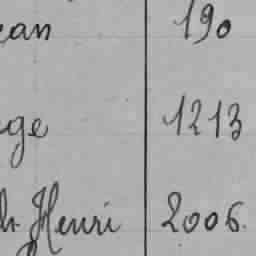 ean 190
ge 1213
h. Henri 2006.